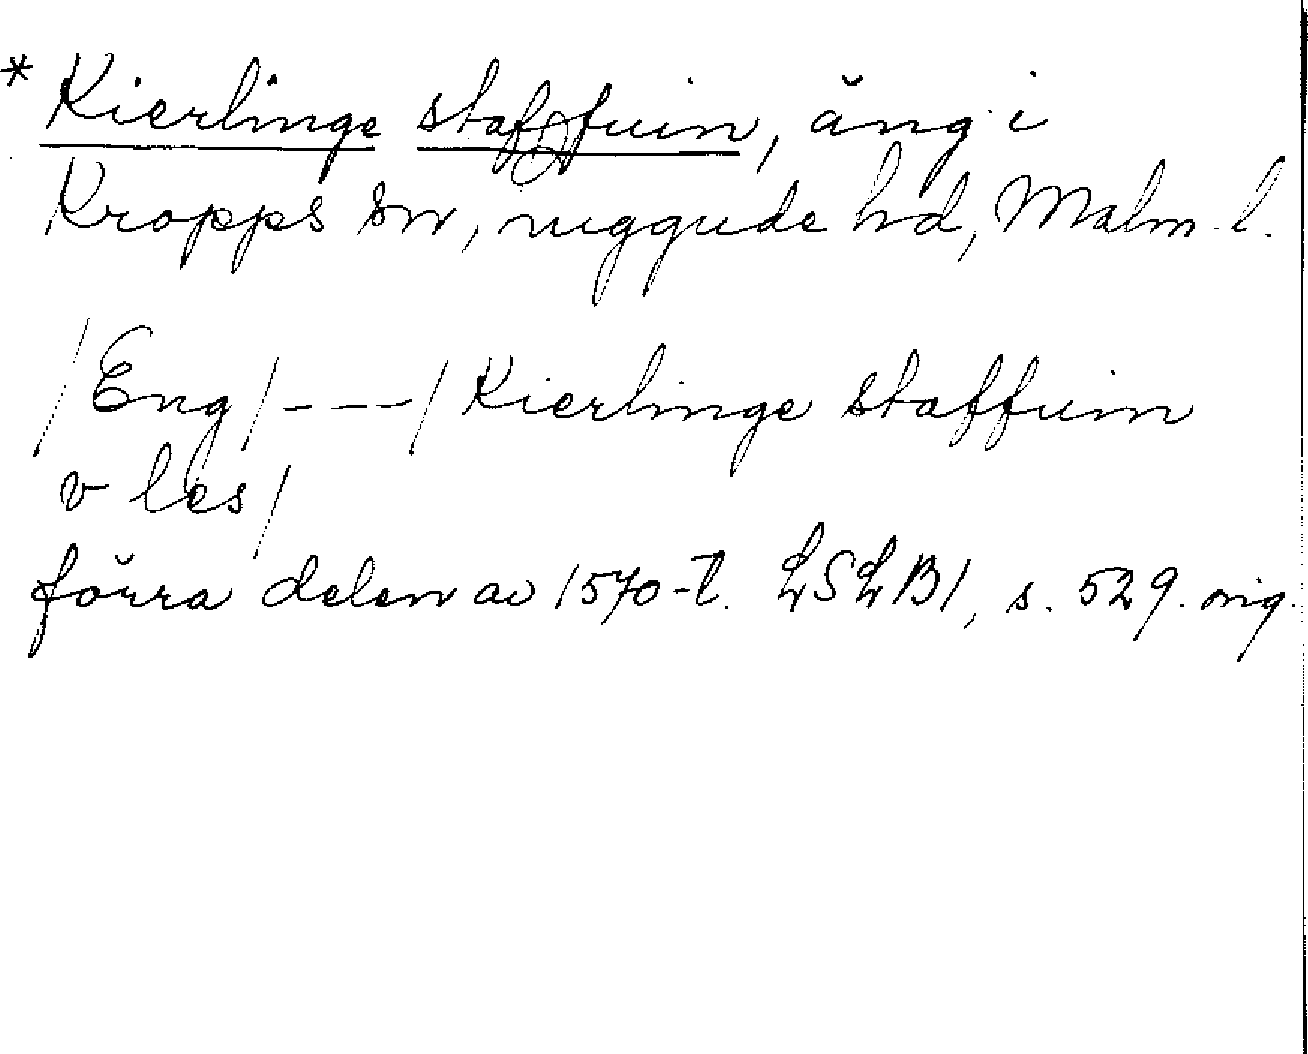 * Kierlinge staffuin, äng i
Kropps sn, luggude hd, Malm. l.
/Eng/---/Kierlinge staffuin
v les/
förra delen av 1570-t. LSLB1, s. 529. orig.